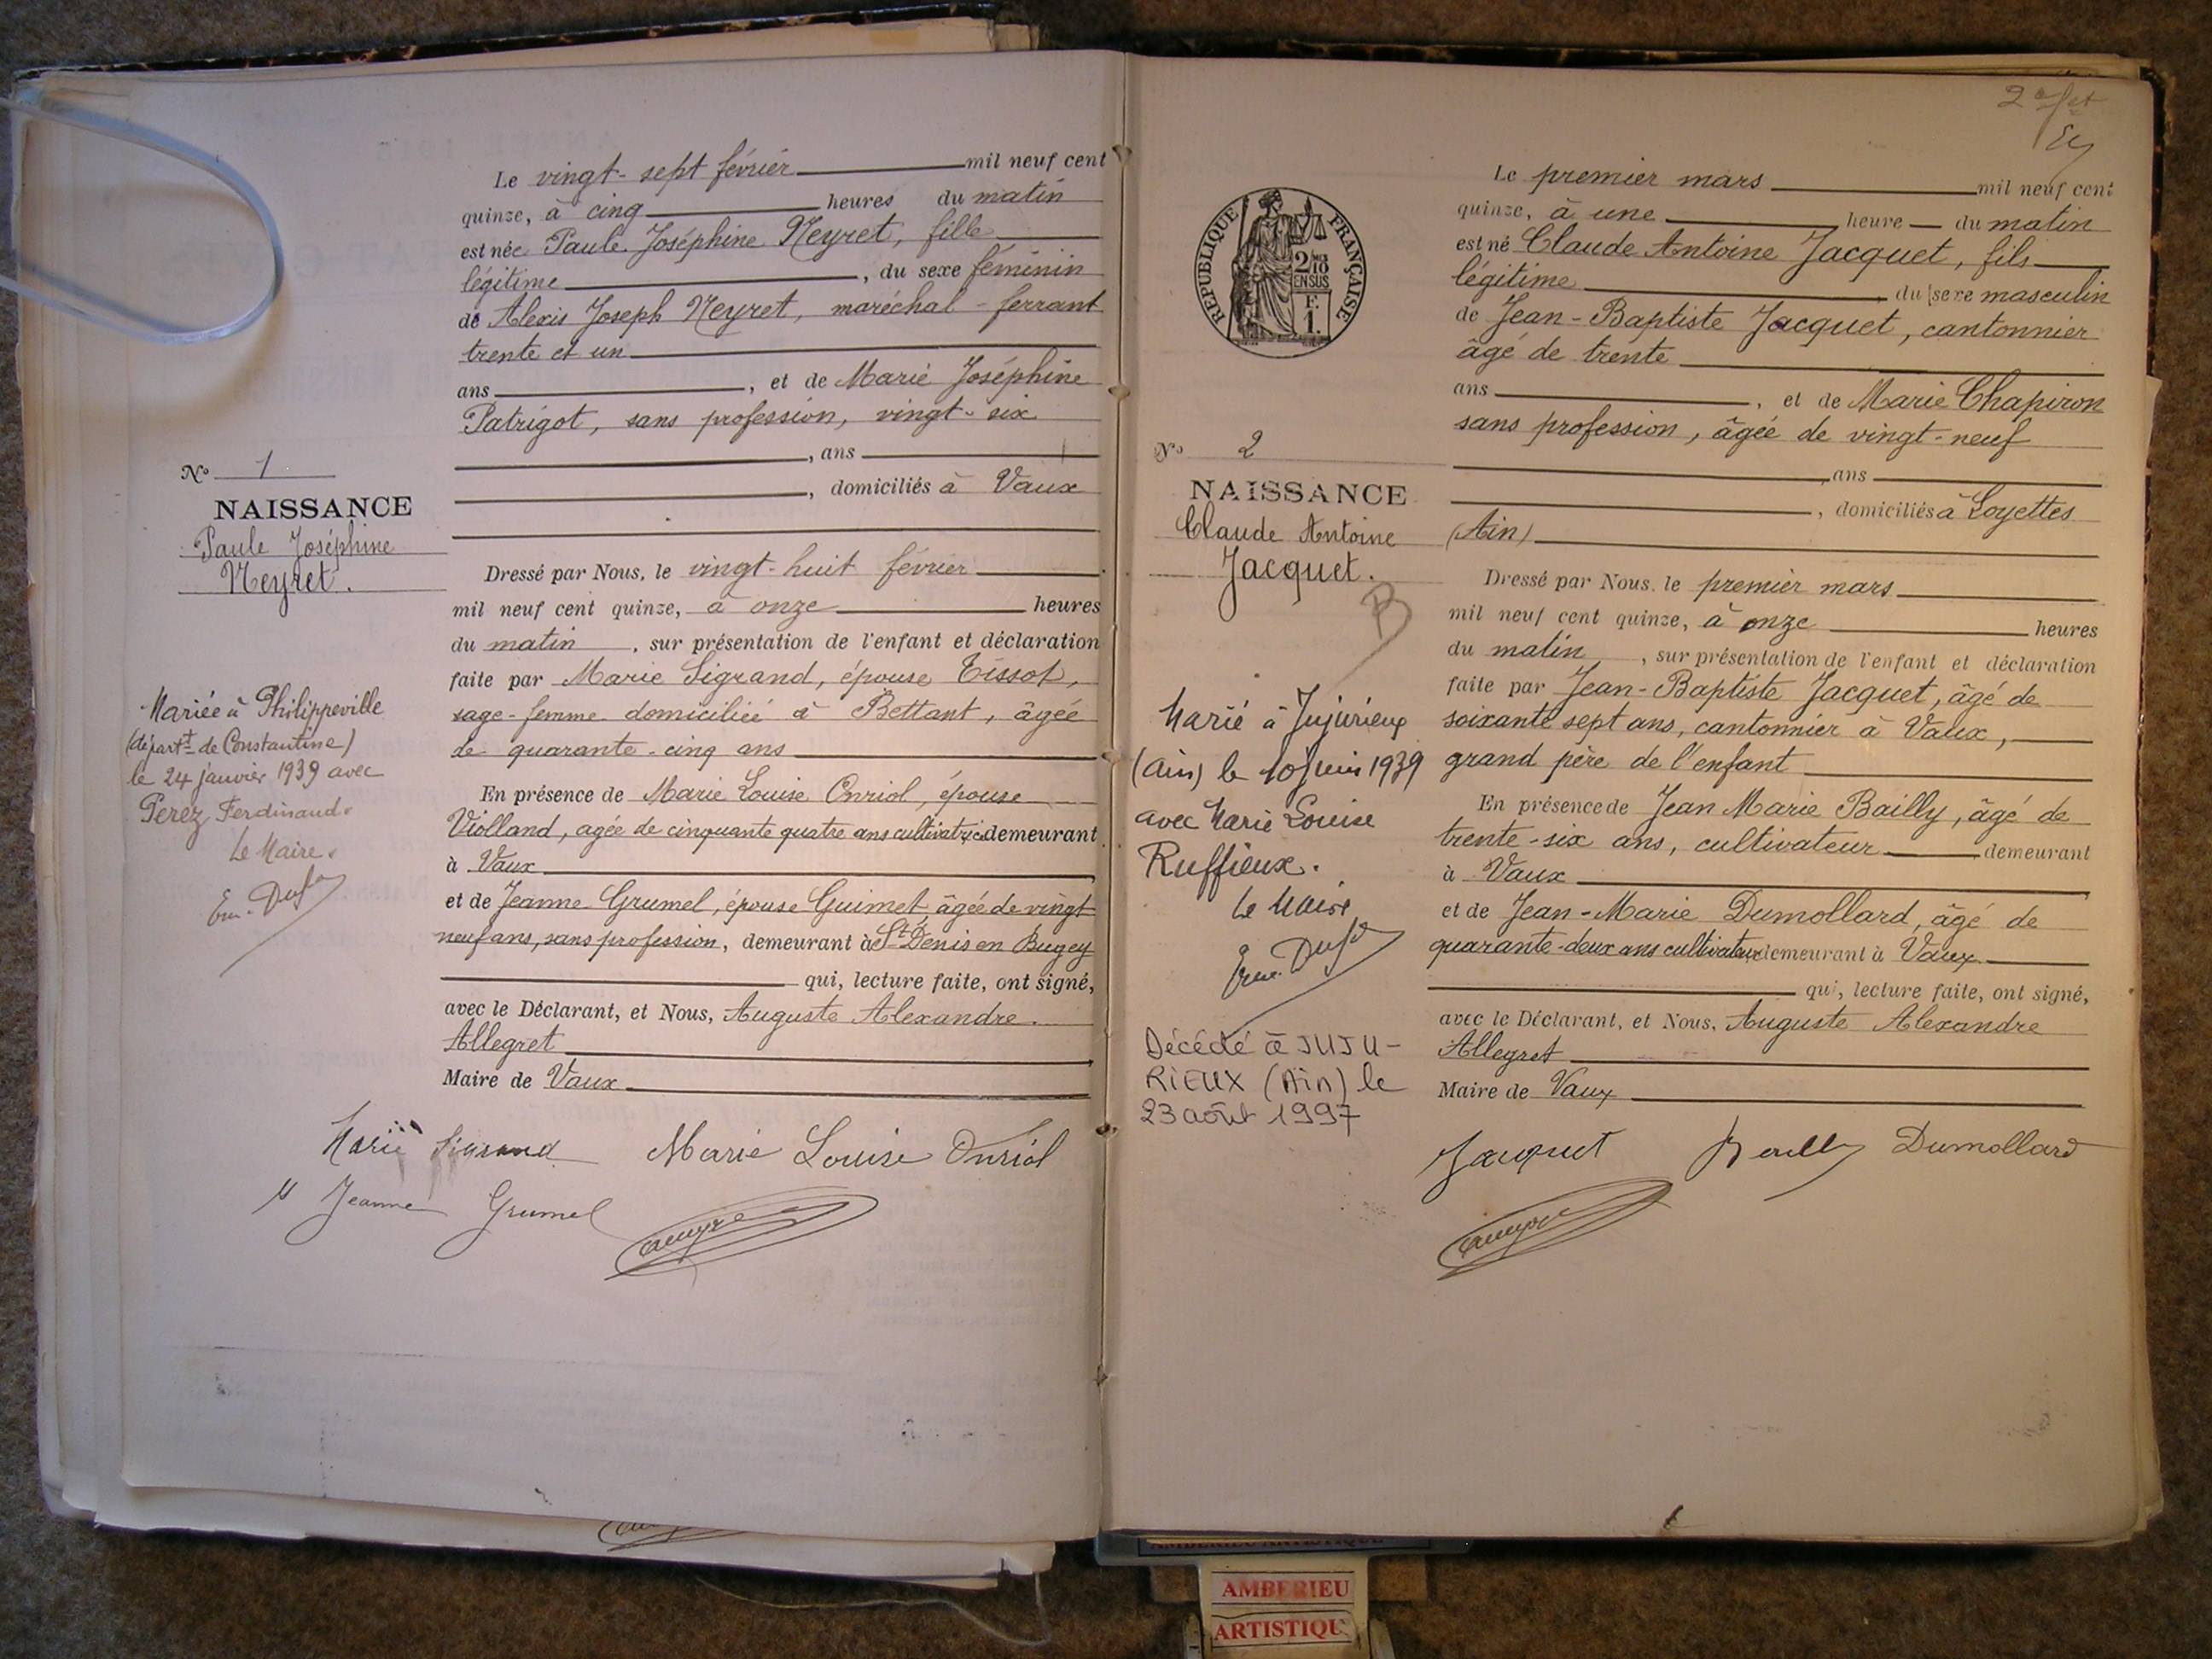 Le vingt-sept février mil neuf cent
quinze, à cinq heures du matin
est née Paule Joséphine Neyret, fille
légitime, du sexe féminin
de Alexis Joseph Neyret, maréchal-ferrant
trente et un
ans, et de Marie Joséphine
Patrigot, sans profession, vingt-six
, ans
, domiciliés à Vaux
No 1
NAISSANCE
Paule Joséphine
Neyret.
Dressé par Nous, le vingt-huit février
mil neuf cent quinze, à onze heures
du matin, sur présentation de l'enfant et déclaration
faite par Marie Sigrand, épouse Tissot,
sage-femme domiciliée à Bettant, âgée
de quarante-cinq ans
En présence de Marie Louise Onriol, épouse
Violland, agée de cinquante quatre ans cultivatrice demeurant
à Vaux
et de Jeanne Grumel, épouse Guimet, âgée de vingt
neuf ans, sans profession, demeurant à St Denis en Bugey
qui, lecture faite, ont signé,
avec le Déclarant, et Nous, Auguste Alexandre
Allegret
Maire de Vaux
Mariée à Philippeville
(départt de Constantine)
le 24 janvier 1939 avec
Perez Ferdinand.
Le Maire.
Marie Sigrand Marie Louise Onriol
Jeanne Grumel
Le premier mars mil neuf cent
quinze, à une heure du matin
est né Claude Antoine Jacquet, fils
légitime du sexe masculin
de Jean-Baptiste Jacquet, cantonnier
âgé de trente
ans, et de Marie Chapiron
sans profession, âgée de vingt-neuf
, ans
, domiciliés à Loyettes
(Ain)
REPUBLIQUE FRANÇAISE
2/10
EN SUS
F.
1.
No 2
NAISSANCE
Claude Antoine
Jacquet.
Dressé par Nous, le premier mars
mil neuf cent quinze, à onze heures
du matin, sur présentation de l'enfant et déclaration
faite par Jean-Baptiste Jacquet, âgé de
soixante sept ans, cantonnier à Vaux,
grand père de l'enfant
En présence de Jean Marie Bailly, âgé de
trente-six ans, cultivateur demeurant
à Vaux
et de Jean-Marie Dumollard, âgé de
quarante-deux ans cultivateur demeurant à Vaux
qui, lecture faite, ont signé,
avec le Déclarant, et Nous, Auguste Alexandre
Allegret
Maire de Vaux
Marié à Jujurieux
(Ain) le 10 Juin 1939
avec Marie Louise
Ruffieux.
Le Maire
Décédé à JUJU-
RIEUX (Ain) le
23 août 1997
Jacquet Bailly Dumollard
AMBERIEU
ARTISTIQU